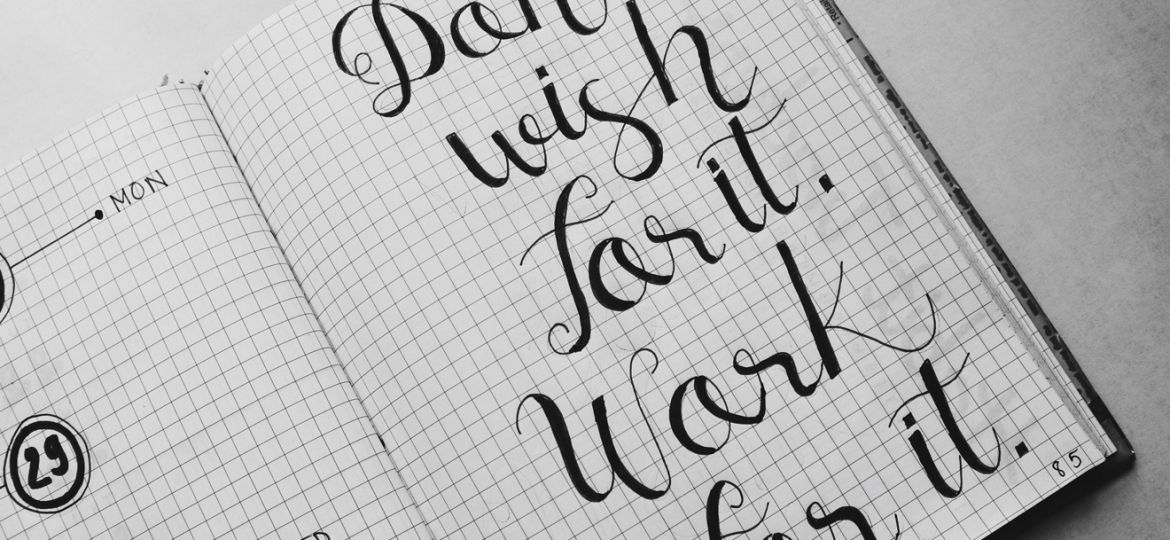 MON
29
Don't
wish
for it.
Work
for it.
85